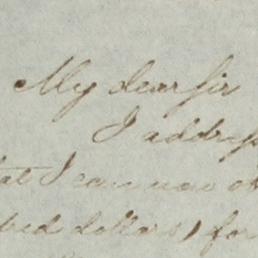 My dear Sir
I address
that I can now
dred dollars, for